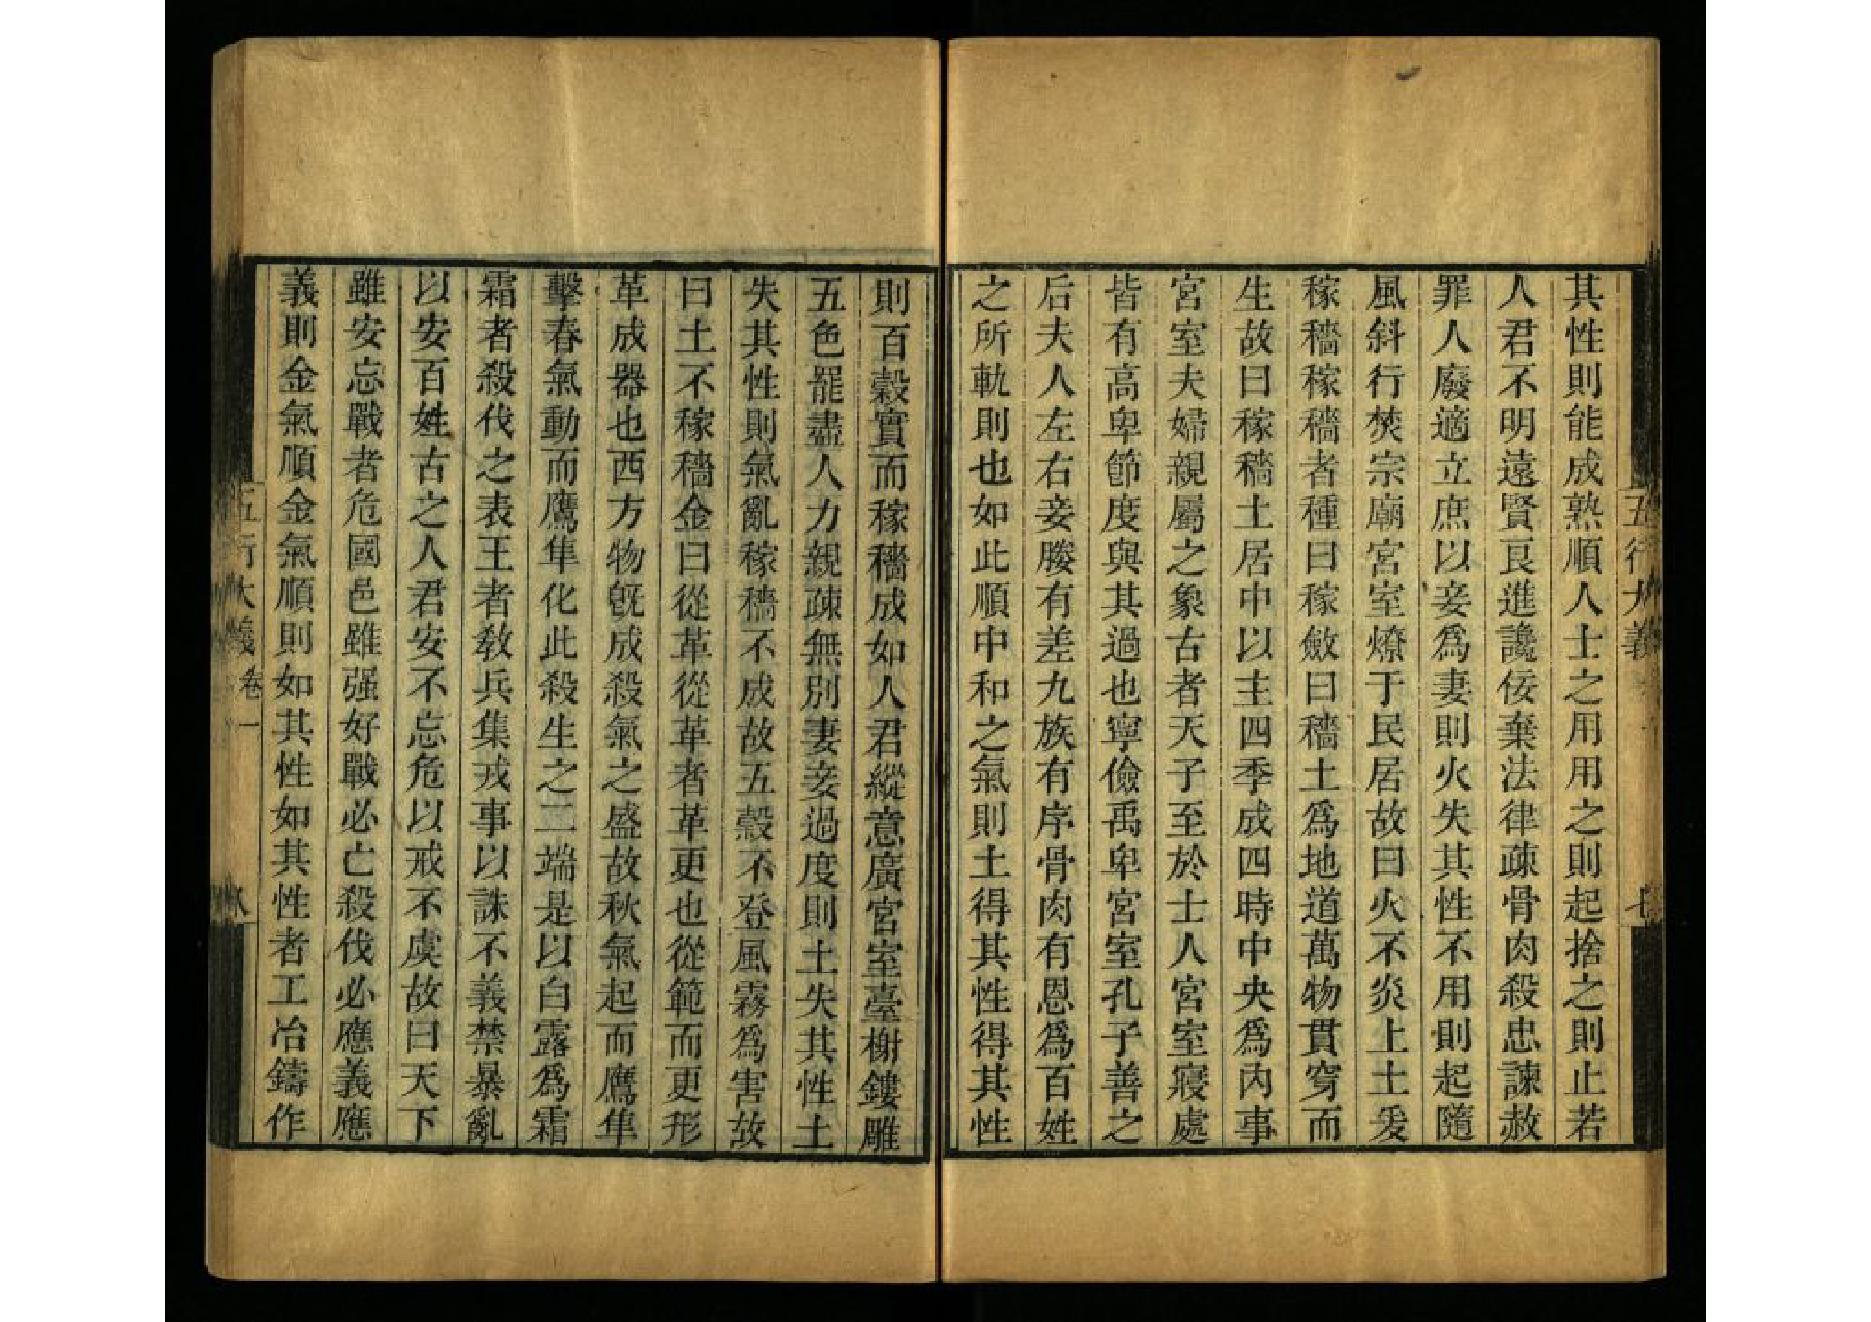 五行大義
七
其性則能成熟順人士之用用之則起捨之則止若
人君不明遠賢良進讒佞棄法律疎骨肉殺忠諫赦
罪人廢適立庶以妾爲妻則火失其性不用則起隨
風斜行焚宗廟宮室燎于民居故曰火不炎上土爰
稼穡稼穡者種曰稼斂曰穡土爲地道萬物貫穿而
生故曰稼穡土居中以主四季成四時中央爲內事
宮室夫婦親屬之象古者天子至於士人宮室寢處
皆有高卑節度與其過也寧儉禹卑宮室孔子善之
后夫人左右妾媵有差九族有序骨肉有恩爲百姓
之所軌則也如此順中和之氣則土得其性得其性
則百穀實而稼穡成如人君縱意廣宮室臺榭鏤雕
五色罷盡人力親疎無別妻妾過度則土失其性土
失其性則氣亂稼穡不成故五穀不登風霧爲害故
曰土不稼穡金曰從革從革者革更也從範而更形
革成器也西方物旣成殺氣之盛故秋氣起而鷹隼
擊春氣動而鷹隼化此殺生之二端是以白露爲霜
霜者殺伐之表王者教兵集戎事以誅不義禁暴亂
以安百姓古之人君安不忘危以戒不虞故曰天下
雖安忘戰者危國邑雖强好戰必亡殺伐必應義應
義則金氣順金氣順則如其性如其性者工冶鑄作
五行大義 卷一
八